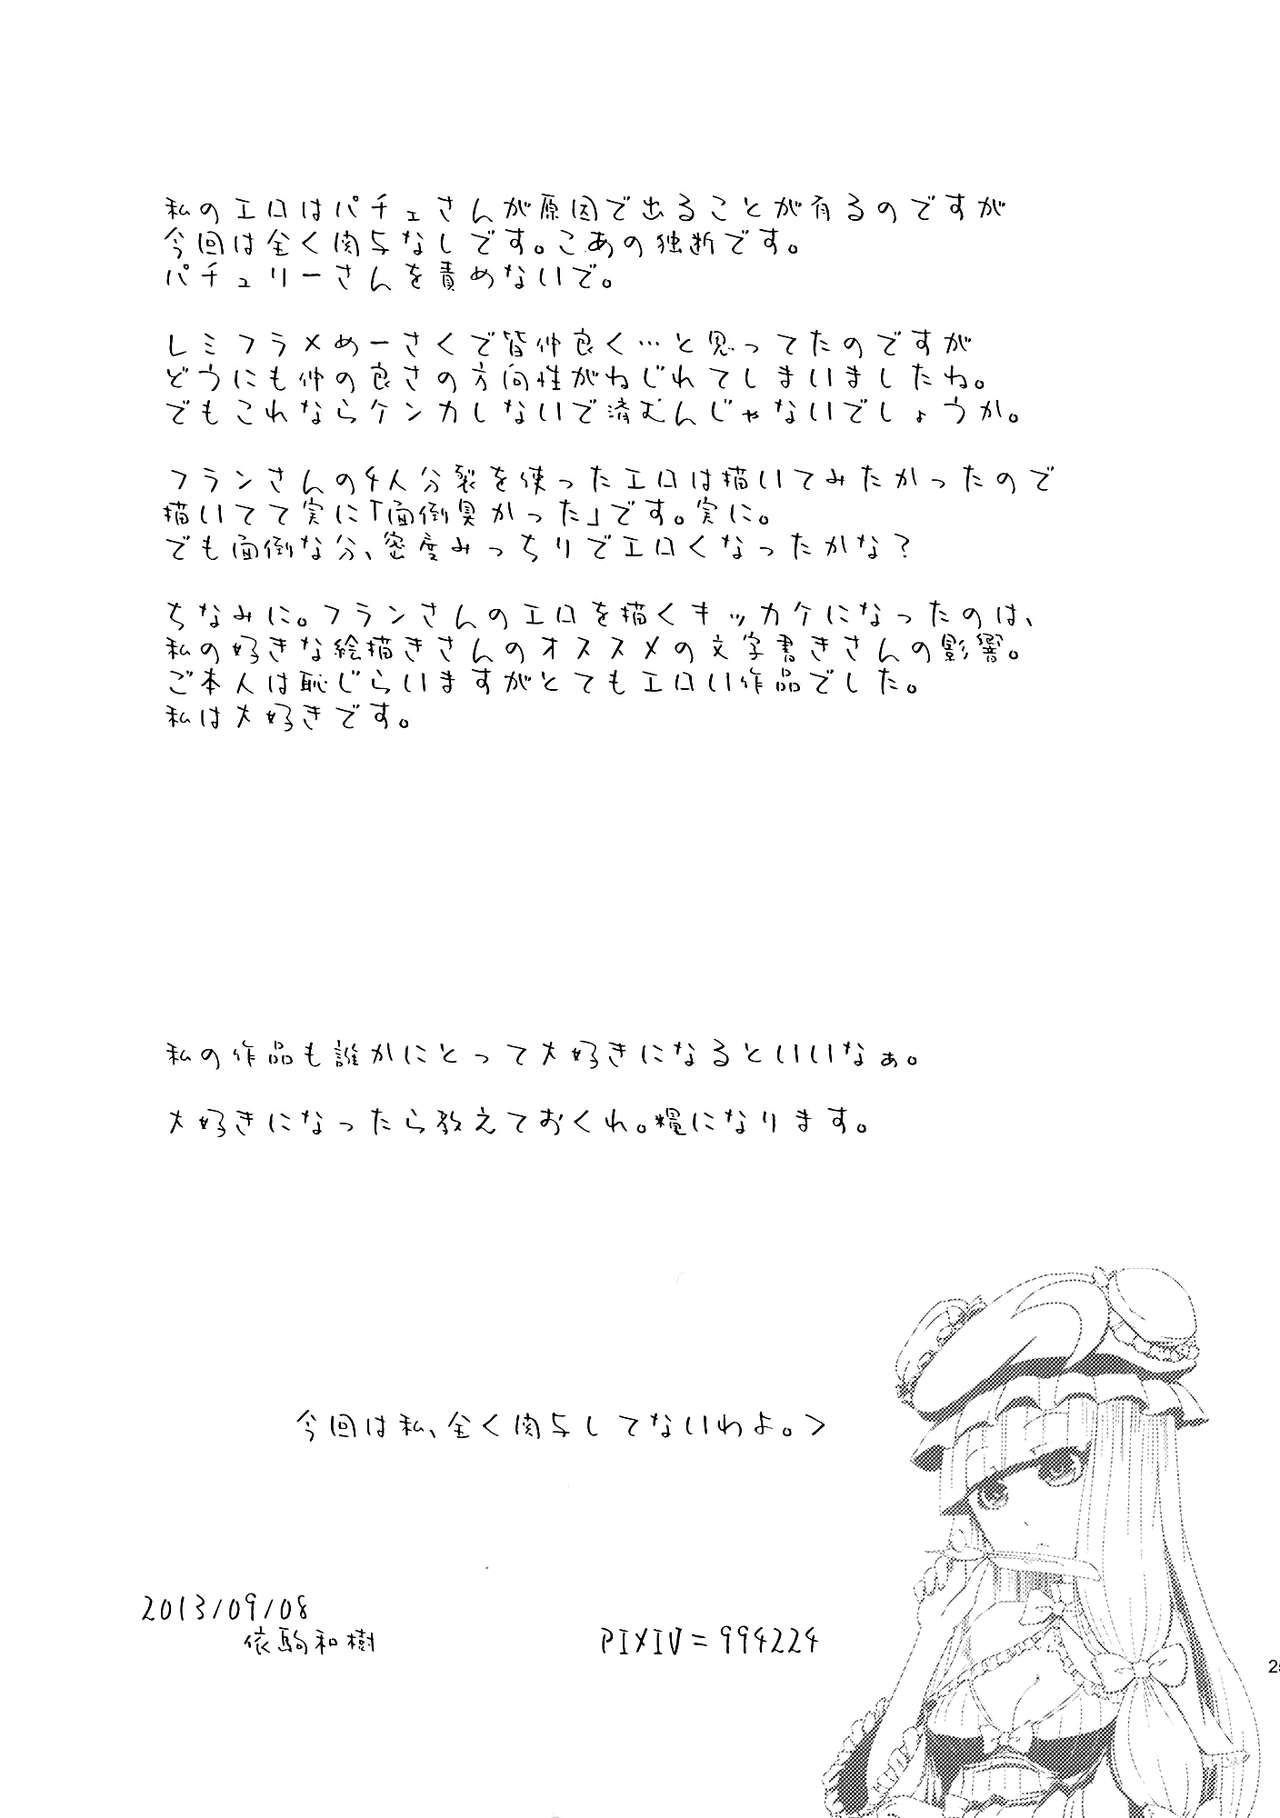 私のエロはパチェさんが原因で出ることが有るのですが
今回は全く関与なしです。こあの独断です。
パチュリーさんを責めないで。
レミフラメめーさくで皆仲良く…と思ってたのですが
どうにも仲の良さの方向性がねじれてしまいましたね。
でもこれならケンカしないで済むんじゃないでしょうか。
フランさんの4人分裂を使ったエロは描いてみたかったので
描いてて実に「面倒臭かった」です。実に。
でも面倒な分、密度みっちりでエロくなったかな?
ちなみに。フランさんのエロを描くキッカケになったのは、
私の好きな絵描きさんのオススメの文字書きさんの影響。
ご本人は恥じらいますがとてもエロい作品でした。
私は大好きです。
私の作品も誰かにとって大好きになるといいなぁ。
大好きになったら教えておくれ。糧になります。
今回は私、全く関与してないわよ。>
2013/09/08
依駒和樹
PIXIV=994224